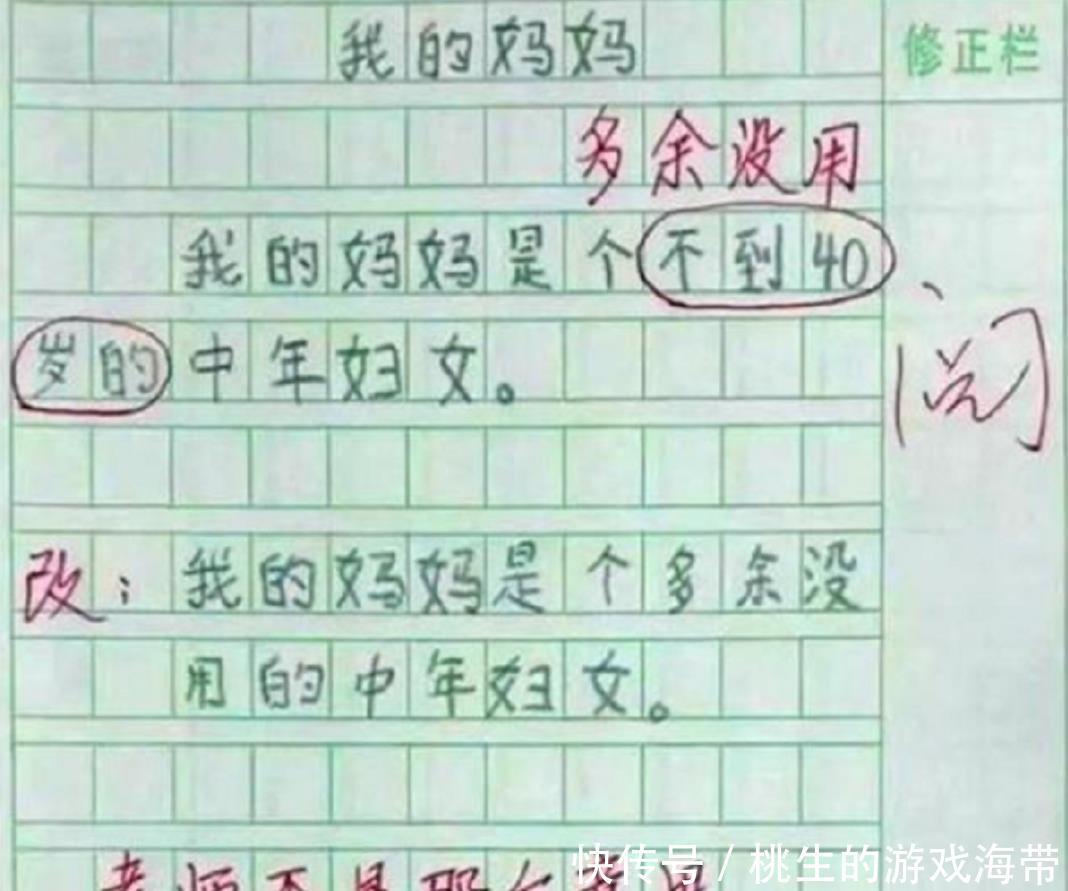 我的妈妈
修正栏
多余没用
我的妈妈是个不到40
岁的中年妇女。
阅
改：我的妈妈是个多余没
用的中年妇女。
老师不是那个意思
快传号 / 桃生的游戏海带